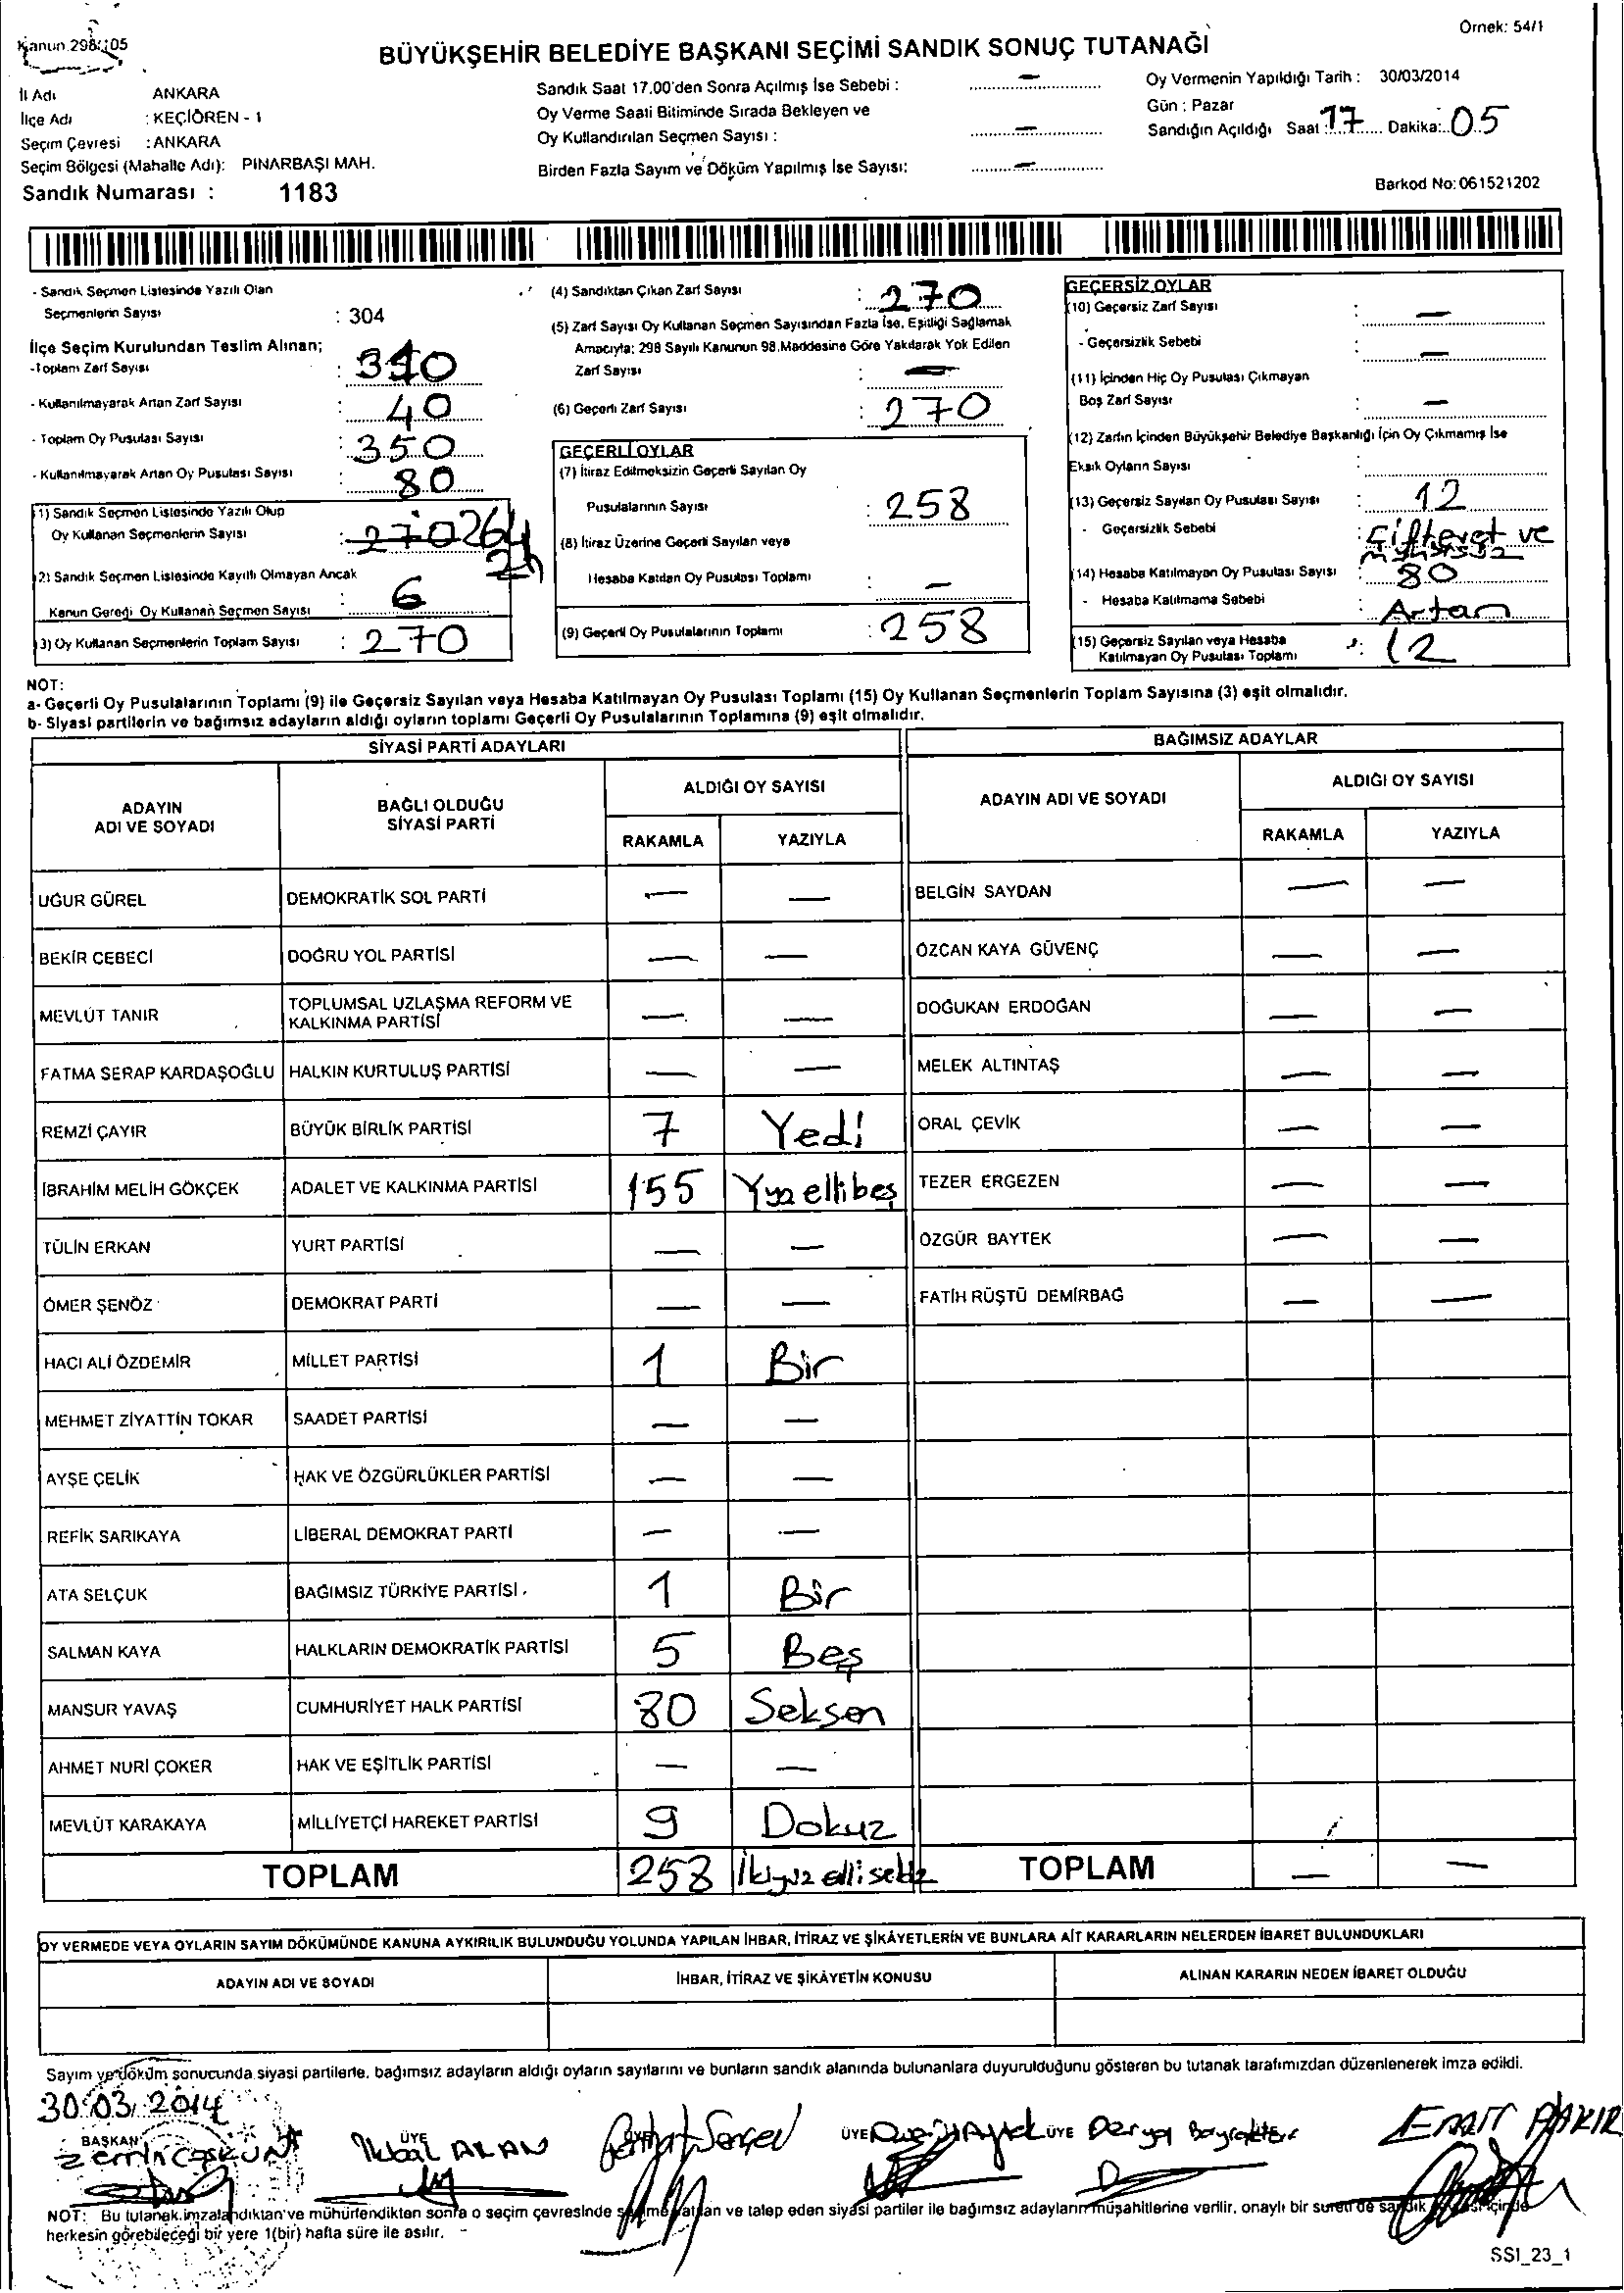 Kanun 298/105
Örnek: 54/1
BÜYÜKŞEHİR BELEDİYE BAŞKANI SEÇİMİ SANDIK SONUÇ TUTANAĞI
İl Adı ANKARA
İlçe Adı : KEÇİÖREN - 1
Seçim Çevresi : ANKARA
Seçim Bölgesi (Mahalle Adı): PINARBAŞI MAH.
Sandık Numarası : 1183
Sandık Saat 17.00'den Sonra Açılmış İse Sebebi : —
Oy Verme Saati Bitiminde Sırada Bekleyen ve
Oy Kullandırılan Seçmen Sayısı : —
Birden Fazla Sayım ve Döküm Yapılmış İse Sayısı: —
Oy Vermenin Yapıldığı Tarih : 30/03/2014
Gün : Pazar
Sandığın Açıldığı Saat : 17 Dakika: 05
Barkod No: 061521202
- Sandık Seçmen Listesinde Yazılı Olan
Seçmenlerin Sayısı : 304
İlçe Seçim Kurulundan Teslim Alınan;
- Toplam Zarf Sayısı : 310
- Kullanılmayarak Artan Zarf Sayısı : 40
- Toplam Oy Pusulası Sayısı : 350
- Kullanılmayarak Artan Oy Pusulası Sayısı : 80
(1) Sandık Seçmen Listesinde Yazılı Olup
Oy Kullanan Seçmenlerin Sayısı : 270 264
(2) Sandık Seçmen Listesinde Kayıtlı Olmayan Ancak
Kanun Gereği Oy Kullanan Seçmen Sayısı : 6
(3) Oy Kullanan Seçmenlerin Toplam Sayısı : 270
(4) Sandıktan Çıkan Zarf Sayısı : 270
(5) Zarf Sayısı Oy Kullanan Seçmen Sayısından Fazla İse, Eşitliği Sağlamak
Amacıyla; 298 Sayılı Kanunun 98.Maddesine Göre Yakılarak Yok Edilen
Zarf Sayısı : —
(6) Geçerli Zarf Sayısı : 270
GEÇERLİ OYLAR
(7) İtiraz Edilmeksizin Geçerli Sayılan Oy
Pusulalarının Sayısı : 258
(8) İtiraz Üzerine Geçerli Sayılan veya
Hesaba Katılan Oy Pusulası Toplamı : —
(9) Geçerli Oy Pusulalarının Toplamı : 258
GEÇERSİZ OYLAR
(10) Geçersiz Zarf Sayısı : —
- Geçersizlik Sebebi : —
(11) İçinden Hiç Oy Pusulası Çıkmayan
Boş Zarf Sayısı : —
(12) Zarfın İçinden Büyükşehir Belediye Başkanlığı İçin Oy Çıkmamış İse
Eksik Oyların Sayısı :
(13) Geçersiz Sayılan Oy Pusulası Sayısı : 12
- Geçersizlik Sebebi : Çift evet ve
mühürsüz
(14) Hesaba Katılmayan Oy Pusulası Sayısı : 80
- Hesaba Katılmama Sebebi : Artan
(15) Geçersiz Sayılan veya Hesaba
Katılmayan Oy Pusulası Toplamı : 12
NOT:
a- Geçerli Oy Pusulalarının Toplamı (9) ile Geçersiz Sayılan veya Hesaba Katılmayan Oy Pusulası Toplamı (15) Oy Kullanan Seçmenlerin Toplam Sayısına (3) eşit olmalıdır.
b- Siyasi partilerin ve bağımsız adayların aldığı oyların toplamı Geçerli Oy Pusulalarının Toplamına (9) eşit olmalıdır.
SİYASİ PARTİ ADAYLARI
ADAYIN ADI VE SOYADI BAĞLI OLDUĞU SİYASİ PARTİ ALDIĞI OY SAYISI
RAKAMLA YAZIYLA
UĞUR GÜREL DEMOKRATİK SOL PARTİ — —
BEKİR CEBECİ DOĞRU YOL PARTİSİ — —
MEVLÜT TANIR TOPLUMSAL UZLAŞMA REFORM VE KALKINMA PARTİSİ — —
FATMA SERAP KARDAŞOĞLU HALKIN KURTULUŞ PARTİSİ — —
REMZİ ÇAYIR BÜYÜK BİRLİK PARTİSİ 7 Yedi
İBRAHİM MELİH GÖKÇEK ADALET VE KALKINMA PARTİSİ 155 Yüzellibeş
TÜLİN ERKAN YURT PARTİSİ — —
ÖMER ŞENÖZ DEMOKRAT PARTİ — —
HACI ALİ ÖZDEMİR MİLLET PARTİSİ 1 Bir
MEHMET ZİYATTİN TOKAR SAADET PARTİSİ — —
AYŞE ÇELİK HAK VE ÖZGÜRLÜKLER PARTİSİ — —
REFİK SARIKAYA LİBERAL DEMOKRAT PARTİ — —
ATA SELÇUK BAĞIMSIZ TÜRKİYE PARTİSİ 1 Bir
SALMAN KAYA HALKLARIN DEMOKRATİK PARTİSİ 5 Beş
MANSUR YAVAŞ CUMHURİYET HALK PARTİSİ 80 Seksen
AHMET NURİ ÇOKER HAK VE EŞİTLİK PARTİSİ — —
MEVLÜT KARAKAYA MİLLİYETÇİ HAREKET PARTİSİ 9 Dokuz
TOPLAM 258 İkiyüzellisekiz
BAĞIMSIZ ADAYLAR
ADAYIN ADI VE SOYADI ALDIĞI OY SAYISI
RAKAMLA YAZIYLA
BELGİN SAYDAN — —
ÖZCAN KAYA GÜVENÇ — —
DOĞUKAN ERDOĞAN — —
MELEK ALTINTAŞ — —
ORAL ÇEVİK — —
TEZER ERGEZEN — —
ÖZGÜR BAYTEK — —
FATİH RÜŞTÜ DEMİRBAĞ — —
TOPLAM — —
OY VERMEDE VEYA OYLARIN SAYIM DÖKÜMÜNDE KANUNA AYKIRILIK BULUNDUĞU YOLUNDA YAPILAN İHBAR, İTİRAZ VE ŞİKÂYETLERİN VE BUNLARA AİT KARARLARIN NELERDEN İBARET BULUNDUKLARI
ADAYIN ADI VE SOYADI İHBAR, İTİRAZ VE ŞİKÂYETİN KONUSU ALINAN KARARIN NEDEN İBARET OLDUĞU
Sayım ve döküm sonucunda siyasi partilerle, bağımsız adayların aldığı oyların sayılarını ve bunların sandık alanında bulunanlara duyurulduğunu gösteren bu tutanak tarafımızdan düzenlenerek imza edildi.
30.03.2014
BAŞKAN ÜYE ÜYE ÜYE
Zerrin COŞKUN ALAN Derya Bayraktar
NOT: Bu tutanak imzalandıktan ve mühürlendikten sonra o seçim çevresinde ve talep eden siyasi partiler ile bağımsız adayların müşahitlerine verilir, onaylı bir sureti de sandık
herkesin görebileceği bir yere 1(bir) hafta süre ile asılır.
SSI_23_1